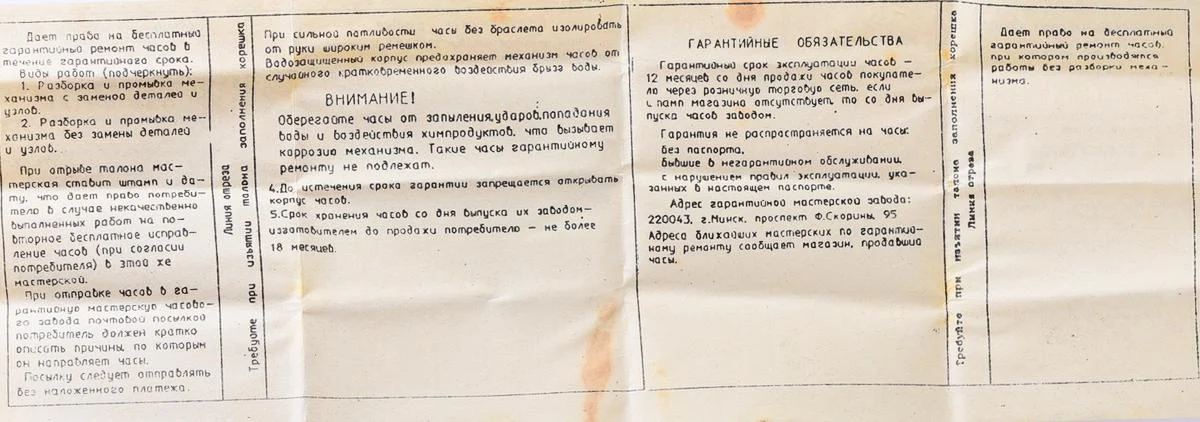 Дает право на бесплатный
гарантийный ремонт часов в
течение гарантийного срока.
Виды работ (подчеркнуть):
1. Разборка и промывка ме-
ханизма с заменой деталей и
узлов.
2. Разборка и промывка ме-
ханизма без замены деталей
и узлов.
При отрыве талона мас-
терская ставит штамп и да-
ту, что дает право потреби-
телю в случае некачественно
выполненных работ на по-
вторное бесплатное исправ-
ление часов (при согласии
потребителя) в этой же
мастерской.
При отправке часов в га-
рантийную мастерскую часово-
го завода почтовой посылкой
потребитель должен кратко
описать причины, по которым
он направляет часы.
Посылку следует отправлять
без наложенного платежа.
Линия отреза
Требуйте при изъятии талона заполнения корешка
При сильной потливости часы без браслета изолировать
от руки широким ремешком.
Водозащищенный корпус предохраняет механизм часов от
случайного кратковременного воздействия брызг воды.
ВНИМАНИЕ!
Оберегайте часы от запыления, ударов, попадания
воды и воздействия химпродуктов, что вызывает
коррозию механизма. Такие часы гарантийному
ремонту не подлежат.
4. До истечения срока гарантии запрещается открывать
корпус часов.
5. Срок хранения часов со дня выпуска их заводом-
изготовителем до продажи потребителю — не более
18 месяцев.
ГАРАНТИЙНЫЕ ОБЯЗАТЕЛЬСТВА
Гарантийный срок эксплуатации часов —
12 месяцев со дня продажи часов покупате-
лю через розничную торговую сеть, если
штамп магазина отсутствует, то со дня вы-
пуска часов заводом.
Гарантия не распространяется на часы:
без паспорта,
бывшие в негарантийном обслуживании,
с нарушением правил эксплуатации, ука-
занных в настоящем паспорте.
Адрес гарантийной мастерской завода:
220043, г.Минск, проспект Ф.Скорины, 95
Адреса ближайших мастерских по гарантий-
ному ремонту сообщает магазин, продавший
часы.
Требуйте при изъятии талона заполнения корешка
Линия отреза
Дает право на бесплатный
гарантийный ремонт часов,
при котором производятся
работы без разборки меха-
низма.